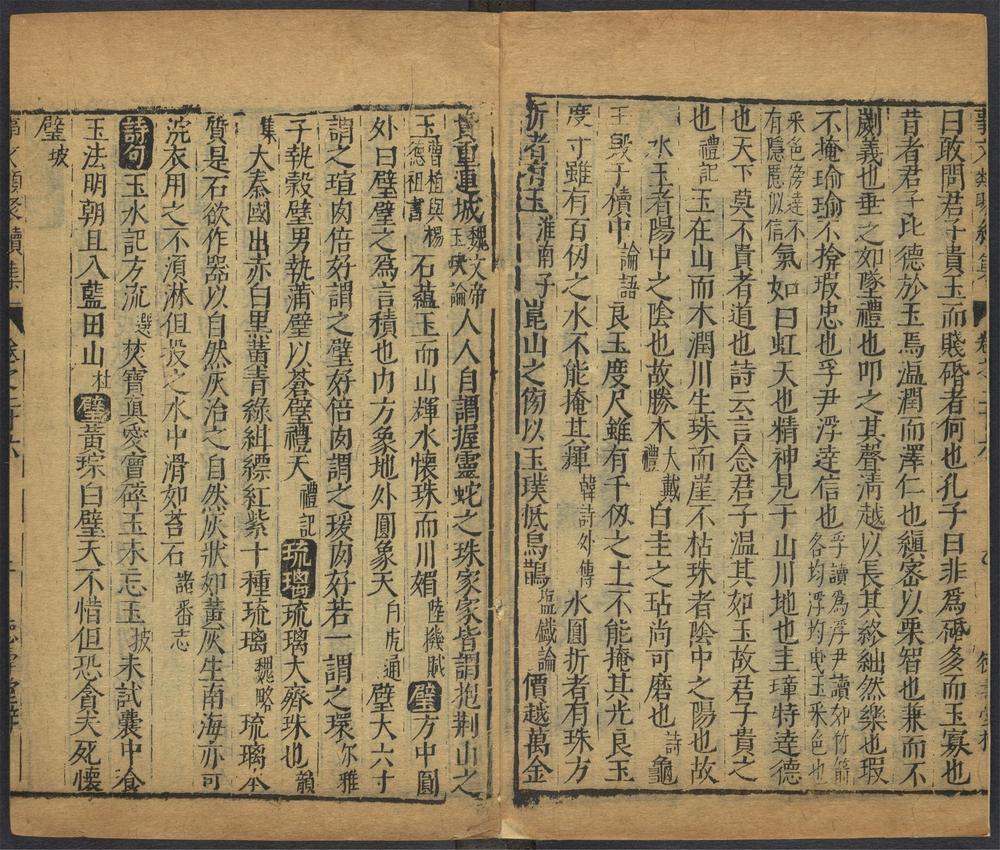 事文類聚續集 卷之二十六
曰敢問君子貴玉而賤碈者何也孔子曰非爲碈多而玉寡也
昔者君子比德於玉焉温潤而澤仁也縝密以栗智也兼而不
劌義也垂之如墜禮也叩之其聲清越以長其終絀然樂也瑕
不掩瑜瑜不揜瑕忠也孚尹浮達信也孚讀爲浮尹讀如竹箭各均浮均也玉采色也
采色傍達不有隱慝似信氣如白虹天也精神見于山川地也圭璋特達德
也天下莫不貴者道也詩云言念君子温其如玉故君子貴之
也禮記玉在山而木潤川生珠而崖不枯珠者陰中之陽也故
水玉者陽中之陰也故勝木大戴禮白圭之玷尚可磨也詩龜
玉毀于櫝中論語良玉度尺雖有千仭之土不能掩其光良玉
度寸雖有百仭之水不能掩其輝韓詩外傳水圓折者有珠方
折者有玉淮南子崑山之傍以玉璞抵烏鵲塩鐵論價越萬金
貴重連城魏文帝玉玦論人人自謂握靈蛇之珠家家皆謂抱荆山之
玉曹植與楊德祖書石藴玉而山輝水懷珠而川媚陸機賦璧方中圓
外曰璧璧之爲言積也内方象地外圓象天白虎通璧大六寸
謂之瑄肉倍好謂之璧好倍肉謂之瑗肉好若一謂之環尔雅
子執穀璧男執蒲璧以蒼璧禮天禮記琉璃琉璃大齊珠也韻
集大秦國出赤白黑黃青綠紺縹紅紫十種琉璃魏略琉璃本
質是石欲作器以自然灰治之自然灰狀如黃灰生南海亦可
浣衣用之不須淋但投之水中滑如苔石諸番志
詩句玉水記方流選焚寶眞愛寶碎玉未忘玉坡未試囊中飡
玉法明朝且入藍田山杜璧黃琮白璧天不惜但恐貪夫死懷
璧坡